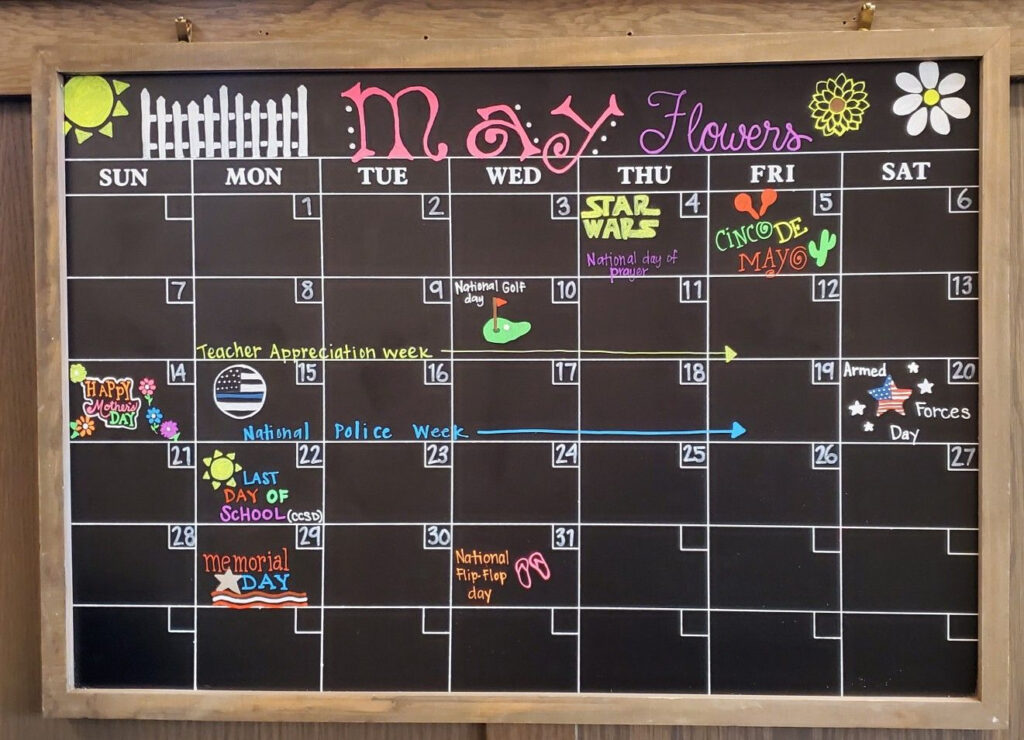 May Flowers
SUN MON TUE WED THU FRI SAT
1 2 3 4 5 6
STAR
WARS
National day of
prayer
CINCO DE
MAYO
7 8 9 10 11 12 13
National Golf
day
Teacher Appreciation week
14 15 16 17 18 19 20
HAPPY
Mother's
DAY
National Police Week
Armed
Forces
Day
21 22 23 24 25 26 27
LAST
DAY OF
SCHOOL (CCSD)
28 29 30 31
memorial
DAY
National
Flip-Flop
day